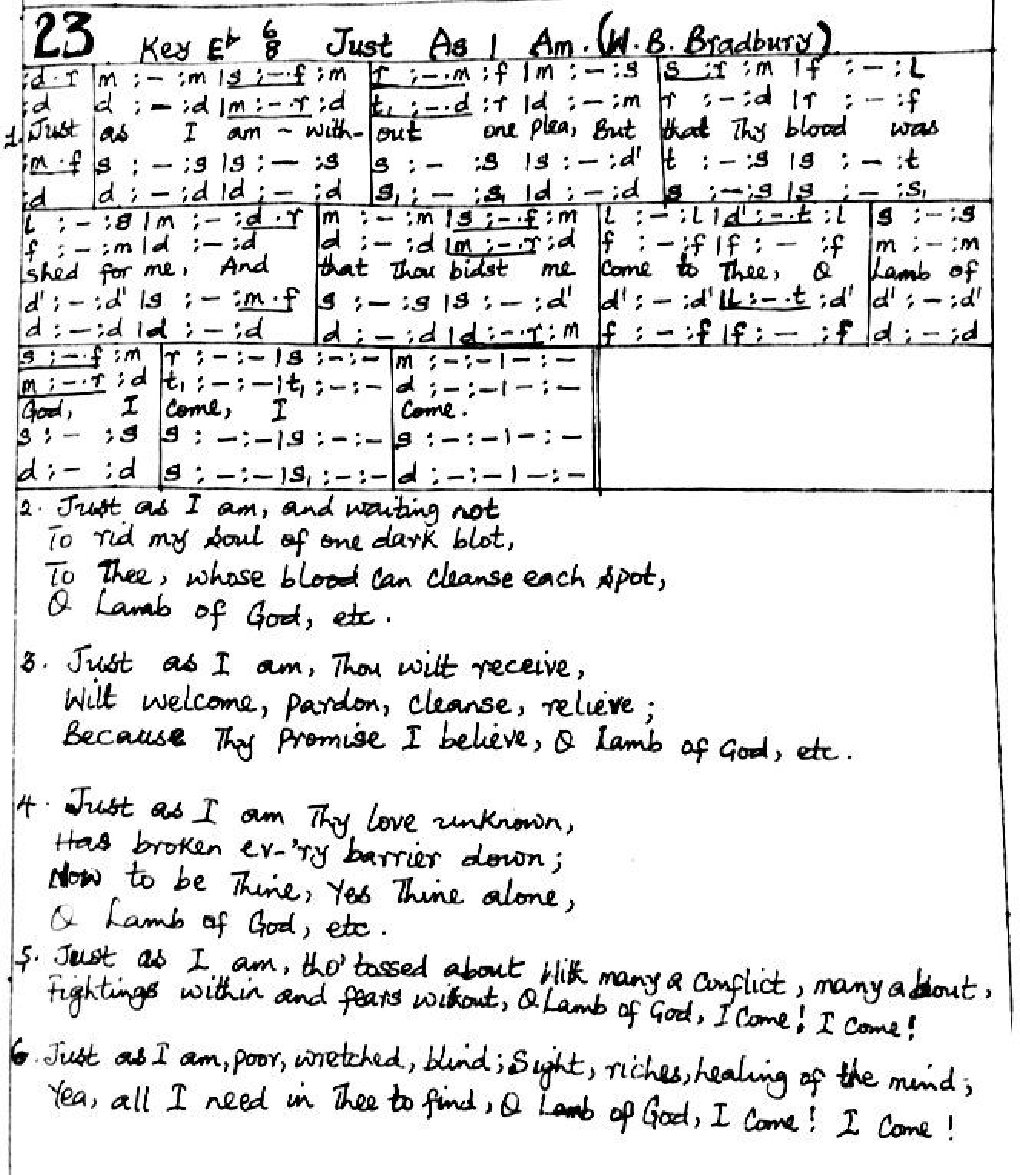 23 Key E♭ 6/8 Just As I Am. (W. B. Bradbury)
:d . r | m : – : m | s : – . f : m | r : – . m : f | m : – : s | s : r : m | f : – : l
:d | d : – : d | m : – . r : d | t₁ : – . d : r | d : – : m | r : – : d | r : – : f
1. Just as I am – with- out one plea, But that Thy blood was
:m . f | s : – : s | s : – : s | s : – : s | s : – : d' | t : – : s | s : – : t
:d | d : – : d | d : – : d | s₁ : – : s₁ | d : – : d | s : – : s | s : – : s₁
l : – : s | m : – : d . r | m : – : m | s : – . f : m | l : – : l | d' : – . t : l | s : – : s
f : – : m | d : – : d | d : – : d | m : – . r : d | f : – : f | f : – : f | m : – : m
shed for me, And that Thou bidst me Come to Thee, O Lamb of
d' : – : d' | s : – : m . f | s : – : s | s : – : d' | d' : – : d' | l : – . t : d' | d' : – : d'
d : – : d | d : – : d | d : – : d | d : – . r : m | f : – : f | f : – : f | d : – : d
s : – . f : m | r : – : – | s : – : – | m : – : – | – : –
m : – . r : d | t₁ : – : – | t₁ : – : – | d : – : – | – : –
God, I Come, I Come.
s : – : s | s : – : – | s : – : – | s : – : – | – : –
d : – : d | s : – : – | s₁ : – : – | d : – : – | – : –
2. Just as I am, and waiting not
To rid my soul of one dark blot,
To Thee, whose blood can cleanse each spot,
O Lamb of God, etc.
3. Just as I am, Thou wilt receive,
Wilt welcome, pardon, cleanse, relieve;
Because Thy promise I believe, O Lamb of God, etc.
4. Just as I am Thy love unknown,
Has broken ev-'ry barrier down;
Now to be Thine, Yes Thine alone,
O Lamb of God, etc.
5. Just as I am, tho' tossed about With many a conflict, many a dout,
Fightings within and fears witout, O Lamb of God, I Come! I Come!
6. Just as I am, poor, wretched, blind; Sight, riches, healing of the mind;
Yea, all I need in Thee to find, O Lamb of God, I Come! I Come!